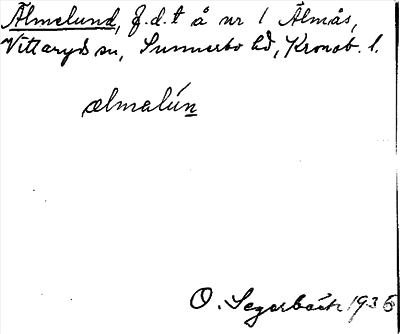 Älmelund, f.d. t å nr 1 Älmås,
Vittaryds sn, Sunnerbo hd, Kronob. l.
ælmalún
O. Segerbäck 1936